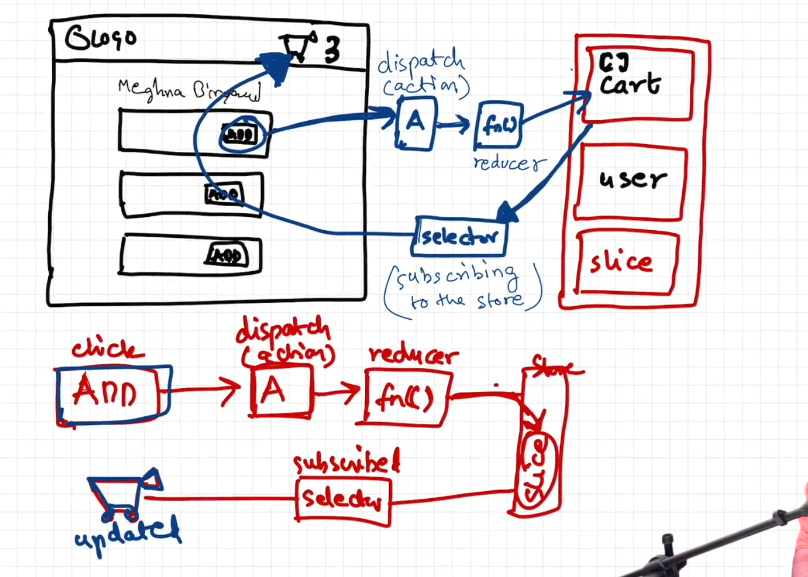 Logo
3
Meghna Bingowd
ADD
ADD
ADD
dispatch
(action)
A
fn()
reducer
[]
cart
user
slice
selector
(subscribing
to the store)
click
ADD
dispatch
(action)
A
reducer
fn()
Store
slice
subscribed
selector
updated